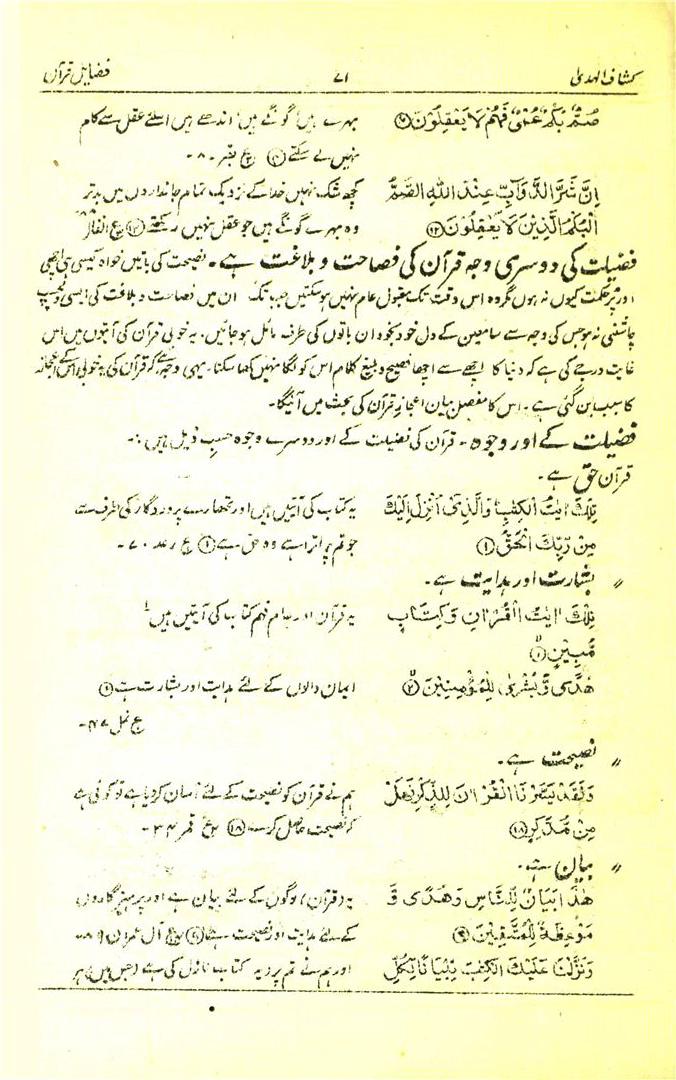 کشاف الہدیٰ ۷۱ فضایل قرآن
صُمٌّۢ بُكْمٌ عُمْیٌ فَهُمْ لَا یَعْقِلُوْنَ بہرے ہیں گونگے ہیں اندھے ہیں اسلئے عقل سے کام
نہیں لے سکتے
اِنَّ شَرَّ الدَّوَآبِّ عِنْدَ اللّٰهِ الصُّمُّ کچھ شک نہیں خدا کے نزدیک تمام جانداروں میں بدتر
الْبُكْمُ الَّذِیْنَ لَا یَعْقِلُوْنَ وہ بہرے گونگے ہیں جو عقل نہیں رکھتے
فضیلت کی دوسری وجہ قرآن کی فصاحت و بلاغت ہے۔ نصیحت کی باتیں خواہ کیسی ہی اچھی
اور پُر حکمت کیوں نہ ہوں گروہ اس وقت تک مقبول عام نہیں ہو سکتیں جب تک ان میں فصاحت و بلاغت کی ایسی دلچسپ
چاشنی نہ ہو جس کی وجہ سے سامعین کے دل خود بخود ان باتوں کی طرف مائل ہو جائیں۔ یہ خوبی قرآن کی آیتوں میں اس
غایت درجے کی ہے کہ دنیا کا اچھے سے اچھا فصیح و بلیغ کلام اس کو لگا نہیں کھا سکتا۔ یہی وجہ ہے کہ قرآن کی یہ خوبی اس کے اعجاز
کا سبب بن گئی ہے۔ اس کا مفصل بیان اعجاز قرآن کی بحث میں آئیگا۔
فضیلت کے اور وجوہ۔ قرآن کی فضیلت کے اور دوسرے وجوہ حسب ذیل ہیں :۔
قرآن حق ہے۔
تِلْكَ اٰیٰتُ الْكِتٰبِ وَالَّذِیْۤ اُنْزِلَ اِلَیْكَ یہ کتاب کی آیتیں ہیں اور تمھارے پروردگار کی طرف سے
مِنْ رَّبِّكَ الْحَقُّ ① جو تم پر اترا ہے وہ حق ہے ①
〃 بشارت اور ہدایت ہے۔
تِلْكَ اٰیٰتُ الْقُرْاٰنِ وَكِتَابٍ یہ قرآن اور عام فہم کتاب کی آیتیں ہیں
مُّبِیْنٍ ①
هُدًى وَّبُشْرٰى لِلْمُؤْمِنِیْنَ ② ایمان والوں کے لئے ہدایت اور بشارت ہے
〃 نصیحت ہے۔
وَلَقَدْ یَسَّرْنَا الْقُرْاٰنَ لِلذِّكْرِ فَهَلْ ہم نے قرآن کو نصیحت کے لئے آسان کر دیا ہے تو کوئی ہے
مِنْ مُّدَّكِرٍ کہ نصیحت حاصل کرے
〃 بیان ہے۔
هٰذَا بَیَانٌ لِّلنَّاسِ وَهُدًى وَّ یہ (قرآن) لوگوں کے لئے بیان ہے اور پرہیزگاروں
مَوْعِظَةٌ لِّلْمُتَّقِیْنَ کے لئے ہدایت اور نصیحت ہے
وَنَزَّلْنَا عَلَیْكَ الْكِتٰبَ تِبْیَانًا لِّكُلِّ اور ہم نے تم پر یہ کتاب نازل کی ہے (جس میں) ہر